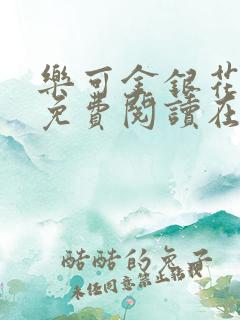 樂可金銀花
免費閱讀在
酷酷的兔子
未经同意禁止转载